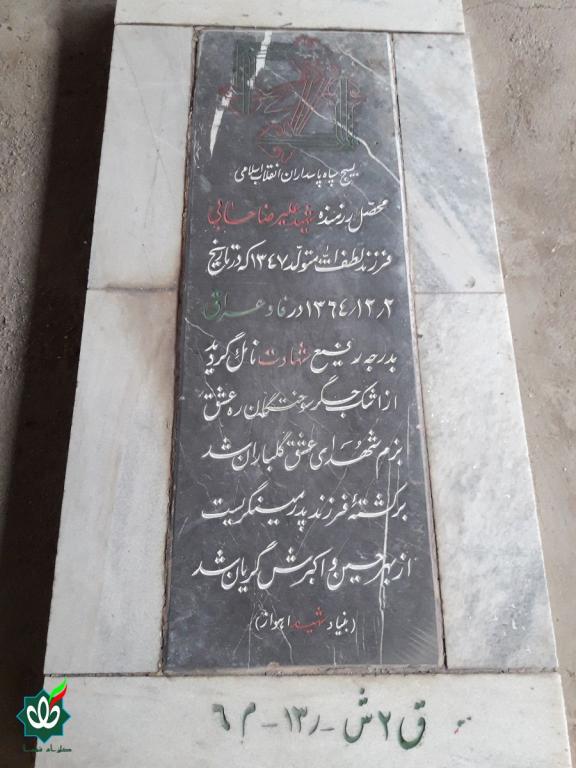 بسیج سپاه پاسداران انقلاب اسلامی
محصل رزمنده شهید علیرضا خابی
فرزند لطف اله متولد ۱۳۴۷ که در تاریخ
۱۳۶۴/۱۲/۲ در فاو عراق
بدرجه رفیع شهادت نائل گردید
از اشک جگر سوختگان ره عشق
بزم شهدای عشق گلباران شد
بر کشتۀ فرزند پدر مینگریست
از بهر حسین و اکبرش گریان شد
(بنیاد شهید اهواز)
ق ۲ ش - ر ۱۳ - م ۶